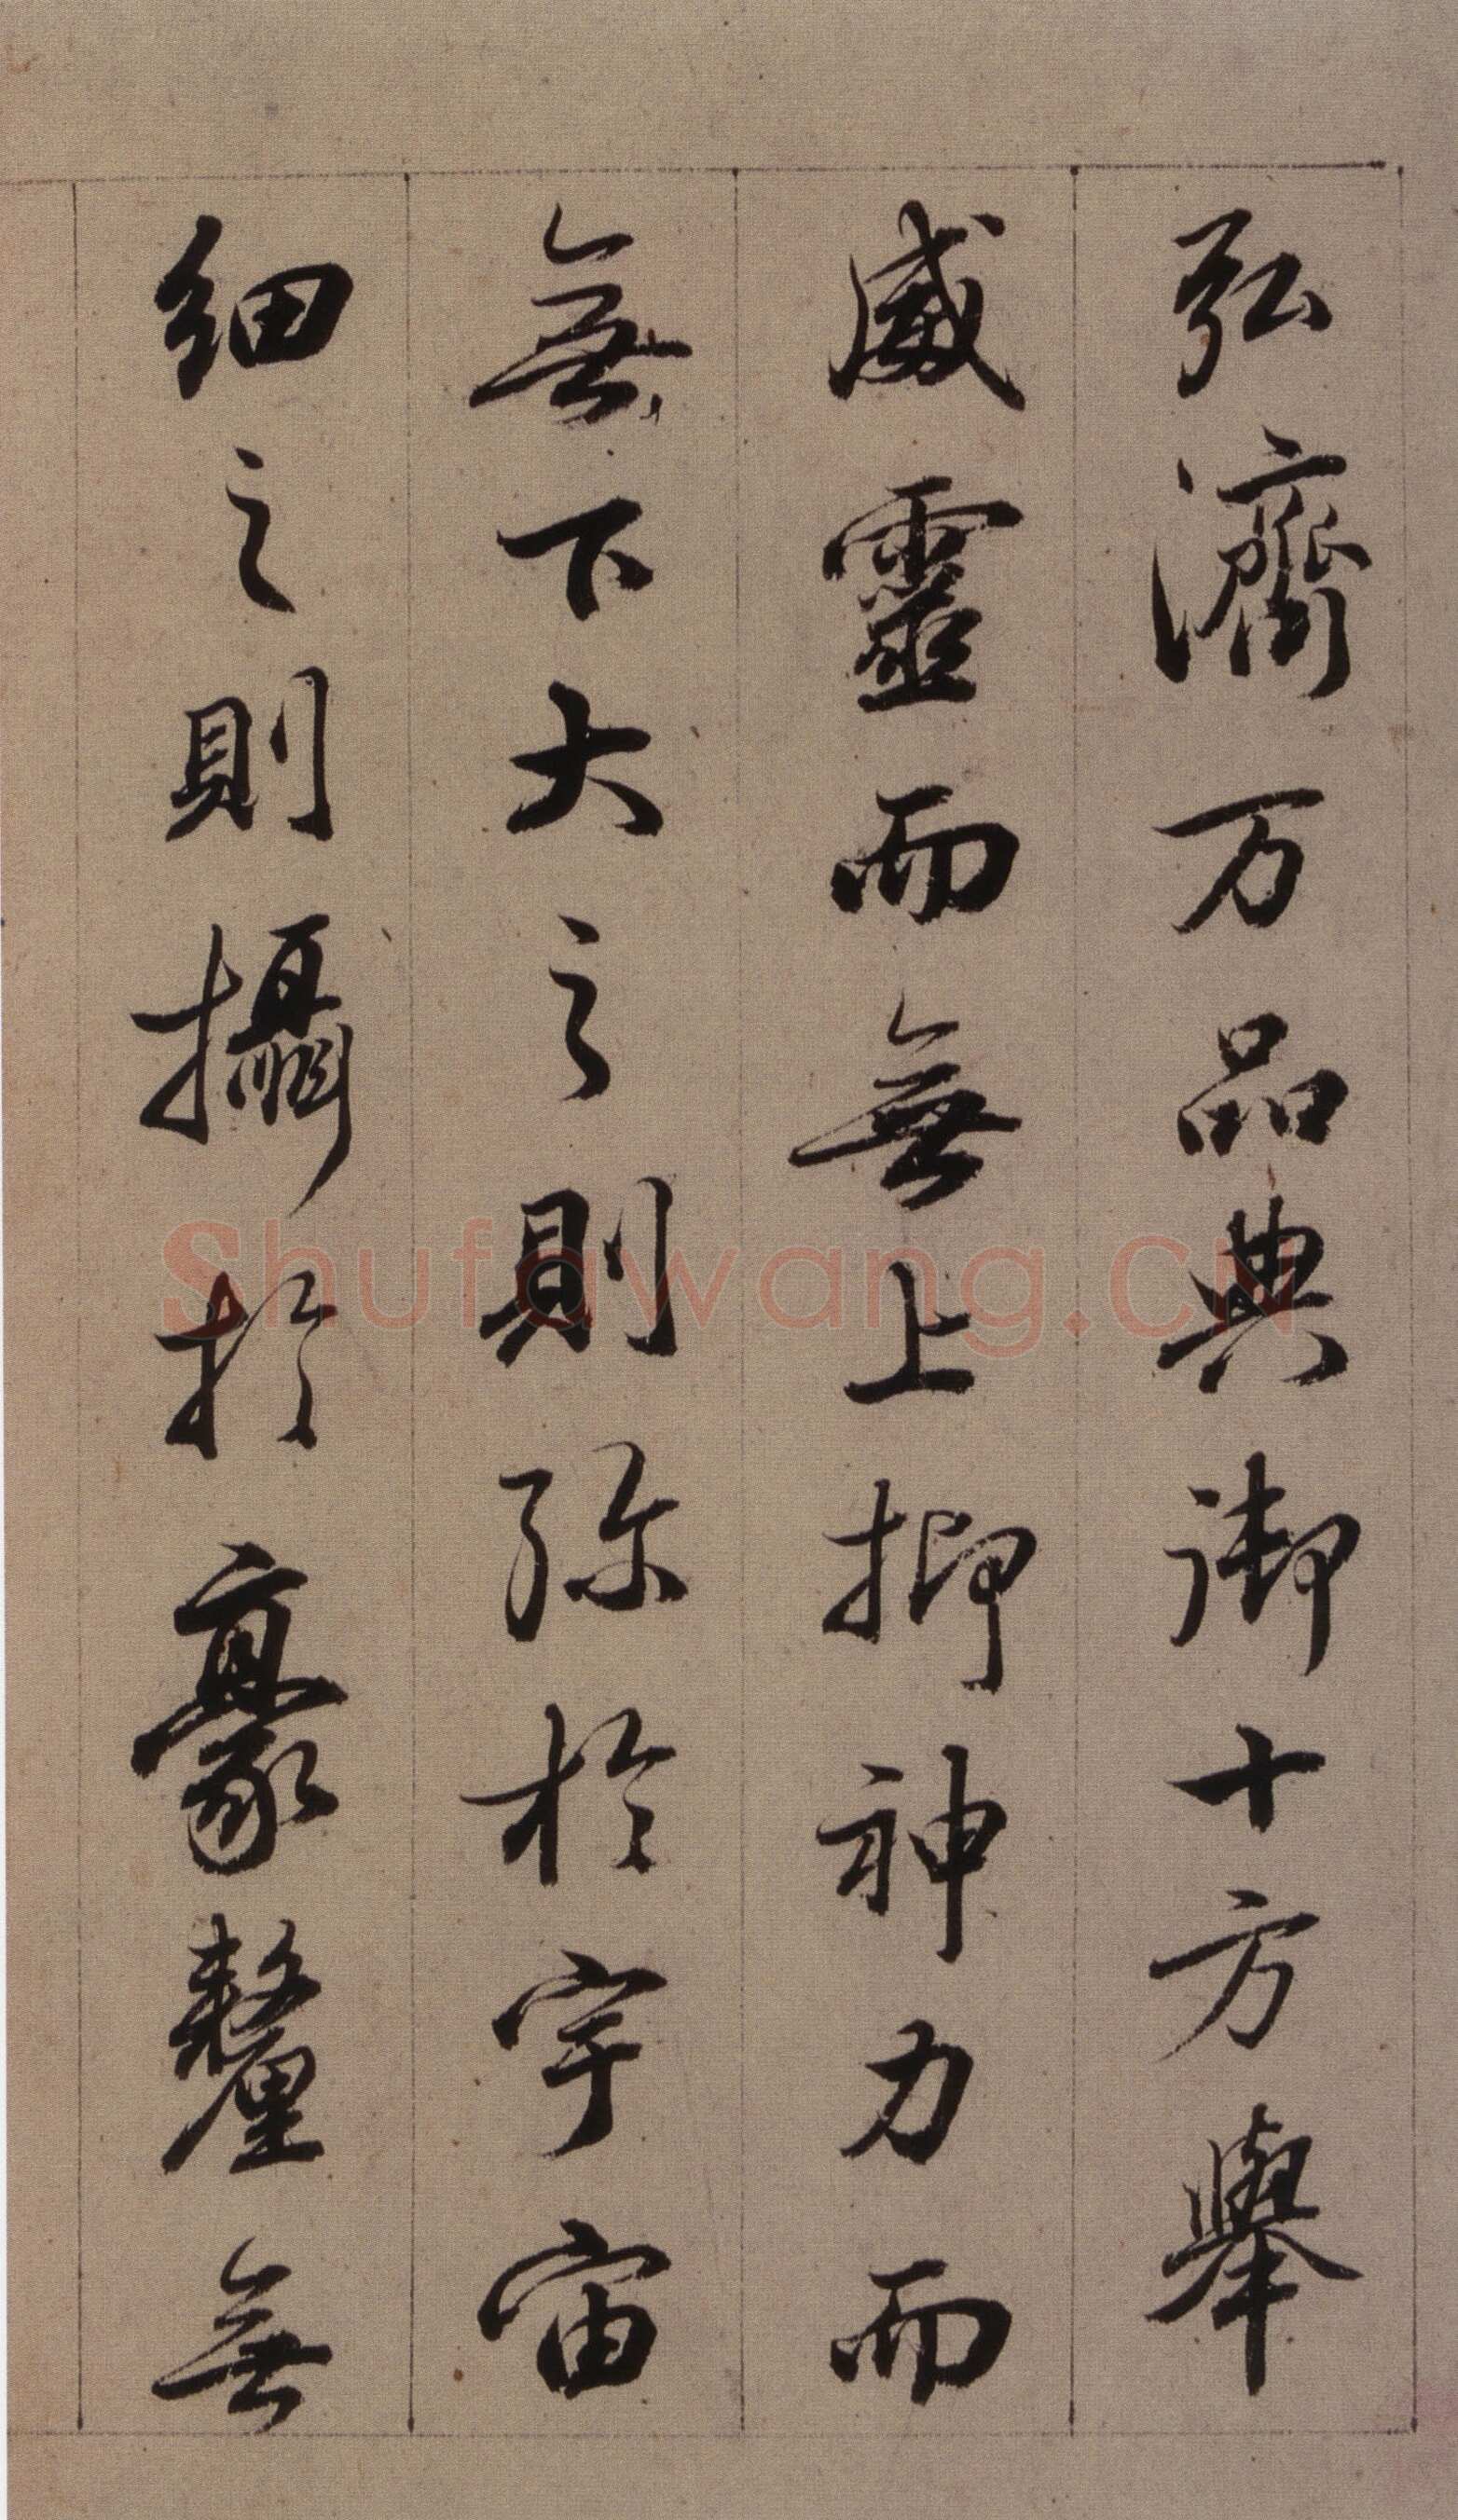 弘濟万品典御十方舉
威靈而無上抑神力而
無下大之則弥於宇宙
細之則攝於豪釐無
Shufawang.CN